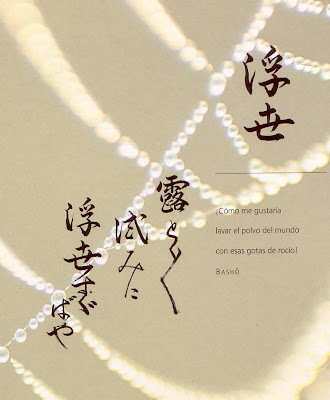 浮世
¡Cómo me gustaría
lavar el polvo del mundo
con esas gotas de rocío!
BASHÔ
露とく〱
試みに
浮世
ばや